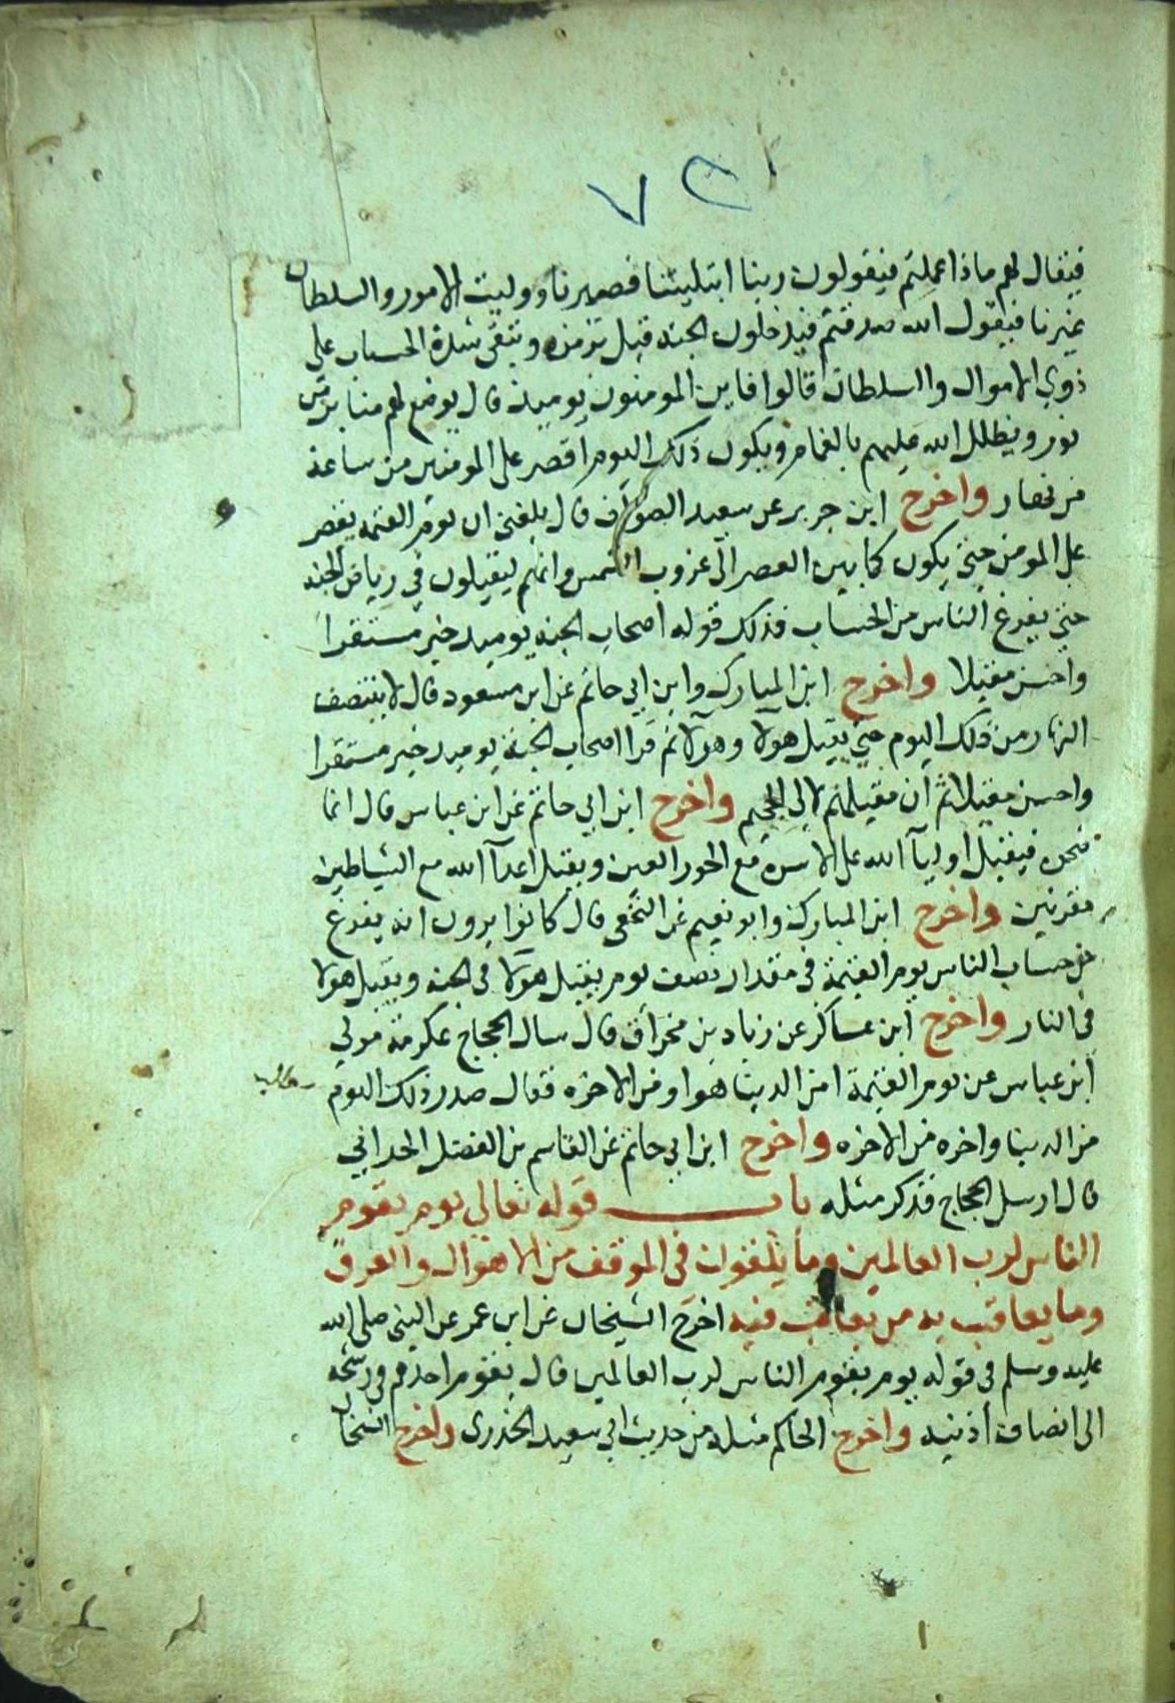 فيقال لهم ماذا عملتم فيقولون ربنا ابتليتنا فصبرنا ووليت الامور والسلطان
غيرنا فيقول الله صدقتم فيدخلون الجنه قبل بزمن وتبقى شدة الحساب على
ذوي الاموال والسلطان قالوا فاين المومنون يوميد قال يوضع لهم منابر من
نور ويظلل الله عليهم بالغمام ويكون ذلك اليوم اقصر على المومنين من ساعة
من نهار واخرج ابن جرير عن سعيد الصواف قال بلغني ان يوم القيمه يقصر
على المومن حتى يكون كما بين العصر الى غروب الشمس وانهم ليقيلون في رياض الجنه
حتى يفرغ الناس من الحساب فذلك قوله اصحاب الجنه يوميد خير مستقرا
واحسن مقيلا واخرج ابن المبارك وابن ابي حاتم عن ابن مسعود قال لا ينتصف
النهار من ذلك اليوم حتى يقيل هولا وهولا ثم قرا اصحاب الجنة يوميد خير مستقرا
واحسن مقيلا ثم ان مقيلهم لالى الجحيم واخرج ابن ابي حاتم عن ابن عباس قال انما
ضحوه فيقيل اوليآ الله على الاسرة مع الحور العين ويقيل اعدآ الله مع الشياطين
مقرنين واخرج ابن المبارك وابو نعيم عن النخعي قال كانوا يرون انه يفرغ
من حساب الناس يوم القيمة في مقدار نصف يوم يقيل هولا في الجنه ويقيل هولا
في النار واخرج ابن عساكر عن زياد بن مخراق قال سال الحجاج عكرمة مولى
ابن عباس عن يوم القيمة امن الدينا هو او من الاخره فقال صدر ذلك اليوم
من الدينا واخره من الاخره واخرج ابن ابي حاتم عن القاسم بن الفضل الحداني
قال ارسل الحجاج فذكر مثله باب قوله تعالى يوم يقوم
الناس لرب العالمين وما يلقون في الموقف من الاهوال والعرق
وما يعاقب به من يعاقب فيه اخرج الشيخان عن ابن عمر عن النبي صلى الله
عليه وسلم في قوله يوم يقوم الناس لرب العالمين قال يقوم احدهم في رشحه
الى انصاف أذنيه واخرج الحاكم مثله من حديث ابي سعيد الخدري واخرج الشيخان